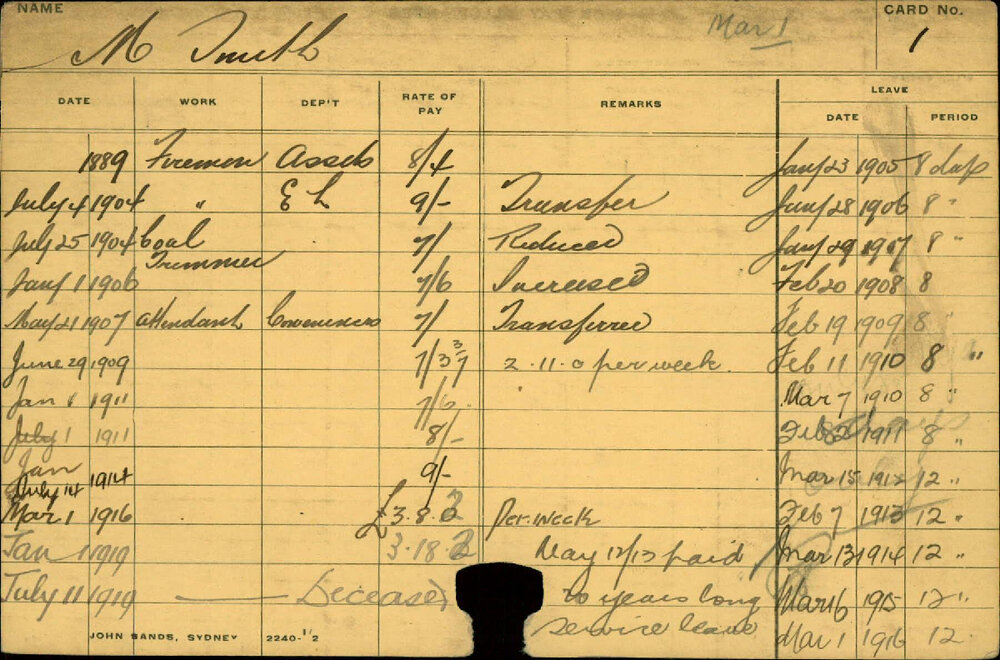 NAME CARD No.
M Smith Mar 1 1
DATE WORK DEP'T RATE OF PAY REMARKS LEAVE
DATE PERIOD
1889 Firemen Assets 8/4 Jany 23 1905 8 days
July 4 1904 " E L 9/- Transfer Jany 28 1906 8 "
July 25 1904 Coal 7/ Reduced Jany 29 1907 8 "
Trimmer
Jany 1 1906 7/6 Increased Feb 20 1908 8
May 21 1907 Attendant 7/ Transferred Feb 19 1909 8 "
June 29 1909 7/3 3/7 2.11.0 per week. Feb 11 1910 8 "
Jan 1 1911 7/6 Mar 7 1910 8 "
July 1 1911 8/- Feb 1911 8 "
Jan
July 14 1914 9/- Mar 15 1912 12 "
Mar 1 1916 £3.8.2 Per. week Feb 7 1913 12 "
Jan 1 1919 3.18.2 May 12/13 paid Mar 13 1914 12 "
July 11 1919 Deceased 20 years long Mar 16 1915 12 "
service leave Mar 1 1916 12
JOHN SANDS, SYDNEY 2240-1/2